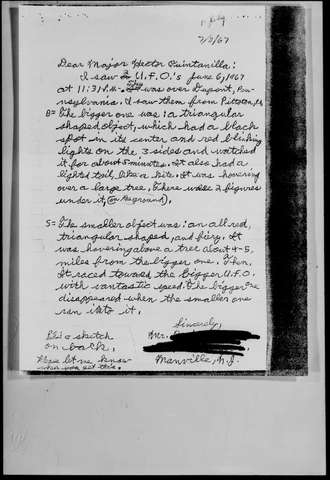 11 July
7/8/67
Dear Major Hector Quintanilla:
I saw 2 U.F.O.'s June 6, 1967
at 11:31 P.M. They was over Dupont, Pen-
nsylvania. I saw them from Pittston, Pa.
B= The bigger one was: a triangular
shaped object, which had a black
spot in its center and red blinking
lights on the 3 sides and watched
it for about 5 minutes. It also had a
lighted tail, like a kite. It was hovering
over a large tree. There were 2 figures
under it, (on the ground).
S= The smaller object was: an all red,
triangular shaped, and fiery. It
was hovering above a tree about 4-5
miles from the bigger one. Then,
It raced toward the Bigger U.F.O.
with vantastic speed. The bigger one
disappeared when the smaller one
ran into it.
Sincerely,
P.S: a sketch
on back.
Mr.
Please let me know
when you get this.
Manville, N.J.